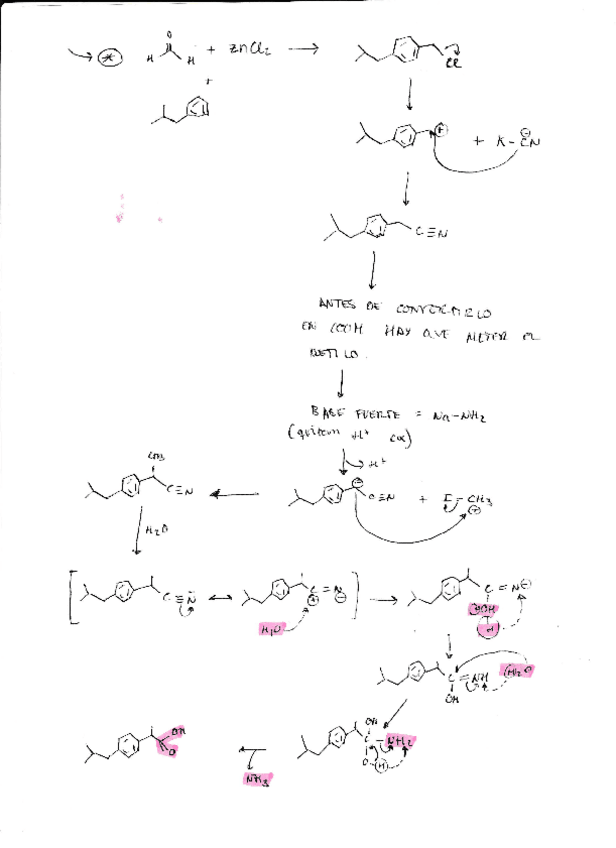 * H O H + ZnCl2 → Cl
+
+ K-CN
C≡N
ANTES DE CONVERTIRLO
EN COOH HAY QUE METER EL
METILO.
BASE FUERTE = Na-NH2
(quitan H+ cα)
H+
CH3
C≡N
C≡N + I-CH3
H2O
C≡N C=N H2O C=N OH H
C=NH H2O
OH
OH
C-NH2
O-H
OH
O
NH3